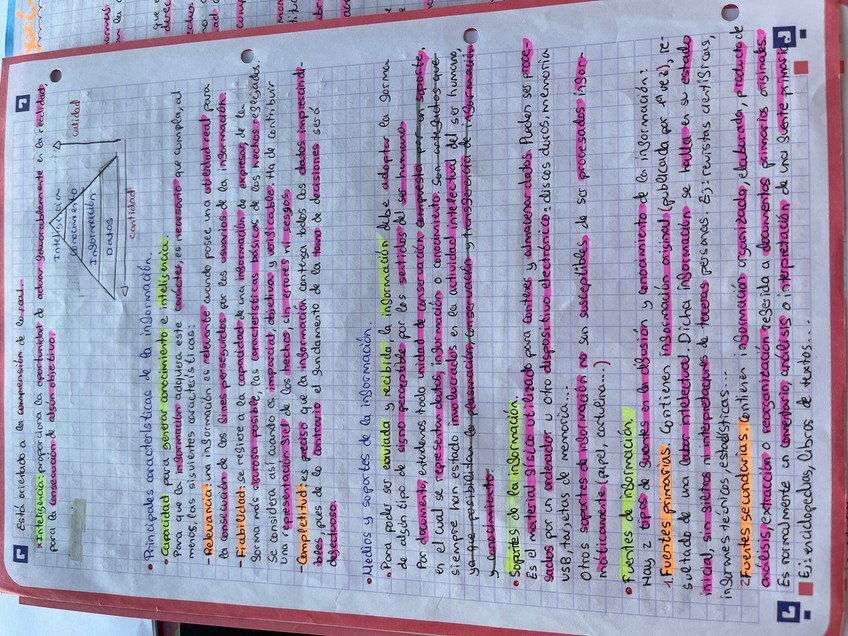 Está orientado a la comprensión de la real.
*Inteligencia: proporciona la oportunidad de actuar favorablemente en la realidad,
para la consecución de algún objetivo.
Inteligencia
conocimiento
Información
Datos
cantidad
calidad
• Principales características de la información.
• Capacidad para generar conocimiento e inteligencia.
Para que la información adquiera este carácter, es necesario que cumpla, al
menos, las siguientes características:
- Relevancia: una información es relevante cuando posee una utilidad real para
la consecución de los fines perseguidos por los usuarios de la información.
- Fiabilidad: se refiere a la capacidad de una información de expresar, de la
forma más rigurosa posible, las características básicas de los hechos reflejados.
Se considera así cuando es imparcial, objetiva y verificable. Ha de contribuir
una representación fiel de los hechos, sin errores ni sesgos.
- Completitud: es preciso que la información contenga todos los datos imprescindi-
bles pues de lo contrario el fundamento de la toma de decisiones será
defectuoso.
• Medios y soportes de la información.
• Para poder ser enviada y recibida la información debe adoptar la forma
de algún tipo de signo perceptible por los sentidos del ser humano.
Por documento, entendemos toda unidad de conservación compuesta por un soporte,
en el cual se representan datos, información o conocimiento. Son artefactos que
siempre han estado involucrados en la actividad intelectual del ser humano,
ya que posibilitan la plasmación, conservación y transferencia de información
y conocimiento.
• Soportes de la información.
Es el material físico utilizado para contener y almacenar datos. Pueden ser proce-
sados por un ordenador u otro dispositivo electrónico: discos duros, memoria
USB, tarjetas de memoria...
Otros soportes de información no son susceptibles de ser procesados infor-
máticamente (papel, cartulina...)
• Fuentes de información.
Hay 2 tipos de fuentes en la difusión y conocimiento de la información:
1. Fuentes primarias. Contienen información original (publicada por 1ª vez), re-
sultado de una labor intelectual. Dicha información se halla en su estado
inicial, sin filtros ni interpretaciones de terceras personas. Ej: revistas científicas,
informes técnicos, estadísticas...
2. Fuentes secundarias. Contienen información organizada, elaborada, producto de
análisis, extracción o reorganización referida a documentos primarios originales.
Es normalmente un comentario, análisis o interpretación de una fuente primaria.
Ej: enciclopedias, libros de textos...